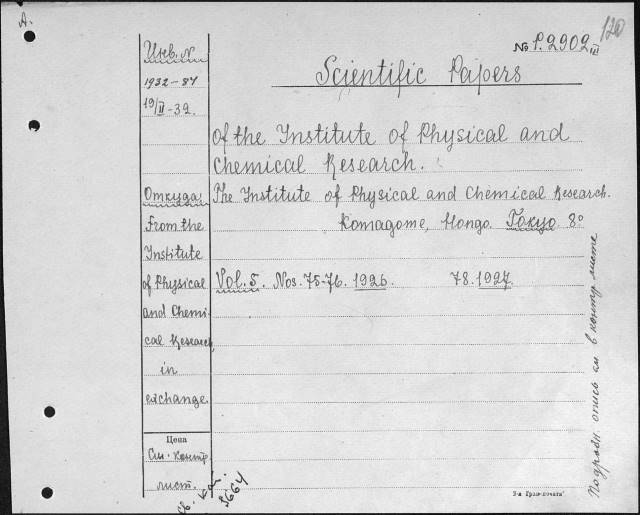 A.
120
№ P.2902 III
Scientific Papers
of the Institute of Physical and
Chemical Research.
The Institute of Physical and Chemical Research.
Komagome, Hongo. Tokyo 8°
Vol. 5. Nos. 75-76. 1926. 78. 1927.
Инв. N
1932-87
19/II-32.
Откуда:
From the
Institute
of Physical
and Chemi-
cal Research,
in
exchange.
Цена
См. контр
лист.
Св. кат.
3664
Подробн. опись см. в контр. листе